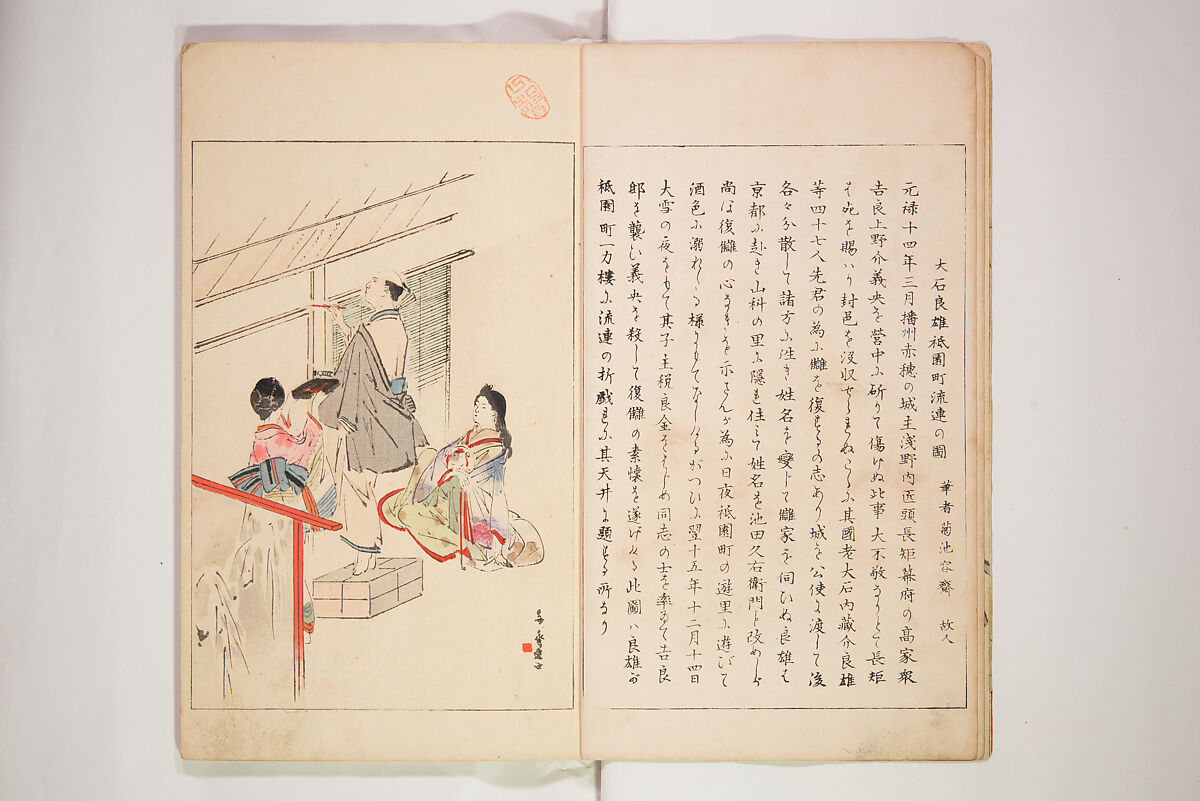 大石良雄祗園町流連の圖　筆者菊池容齋　故人
元禄十四年三月播州赤穂の城主浅野内匠頭長矩幕府の高家衆
吉良上野介義央を營中に斫りて傷けぬ此事大不敬なりとて長矩
は死を賜ハり封邑を没収せられぬこゝに其國老大石内藏介良雄
等四十七人先君の為に讎を復するの志あり城を公使に渡して後
各々分散して諸方に往き姓名を變じて讎家を伺ひぬ良雄は
京都に赴き山科の里に隠れ住みて姓名を池田久右衛門と改めしが
尚ほ復讎の心なきを示さんが為に日夜祗園町の遊里に遊びて
酒色に溺れたる様にもてなしけるがつひに翌十五年十二月十四日
大雪の夜をもて其子主税良金をはじめ同志の士を率ゐて吉良
邸を襲い義央を殺して復讎の素懐を遂げける此圖ハ良雄が
祗園町一力樓に流連の折戯れに其天井に題する所なり